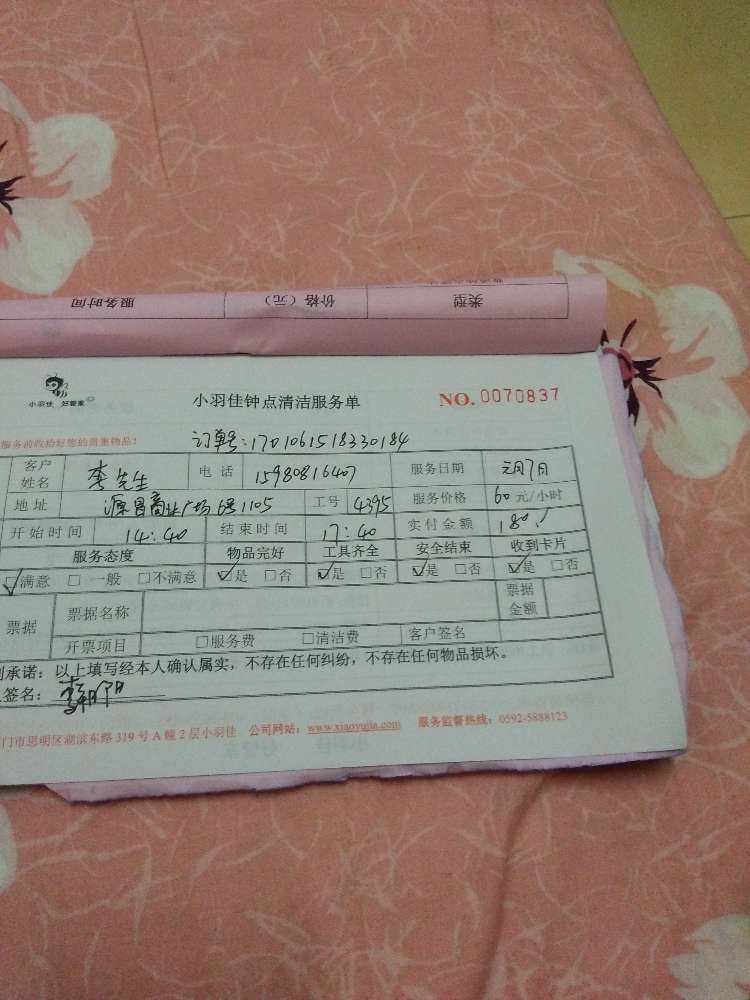 类型 价格（元） 服务时间
小羽佳 好管家
小羽佳钟点清洁服务单
NO. 0070837
服务前收拾好您的贵重物品！
订单号:1701061518330184
客户姓名 李先生 电话 15980816407 服务日期 元月7日
地址 源昌商业广场6号1105 工号 4395 服务价格 60元/小时
开始时间 14:40 结束时间 17:40 实付金额 180
服务态度 物品完好 工具齐全 安全结束 收到卡片
☑满意 □一般 □不满意 ☑是 □否 ☑是 □否 ☑是 □否 ☑是 □否
票据 票据名称 票据金额
开票项目 □服务费 □清洁费 客户签名
承诺：以上填写经本人确认属实，不存在任何纠纷，不存在任何物品损坏。
签名：
门市思明区湖滨东路319号A幢2层小羽佳 公司网站：www.xiaoyujia.com 服务监督热线：0592-5888123